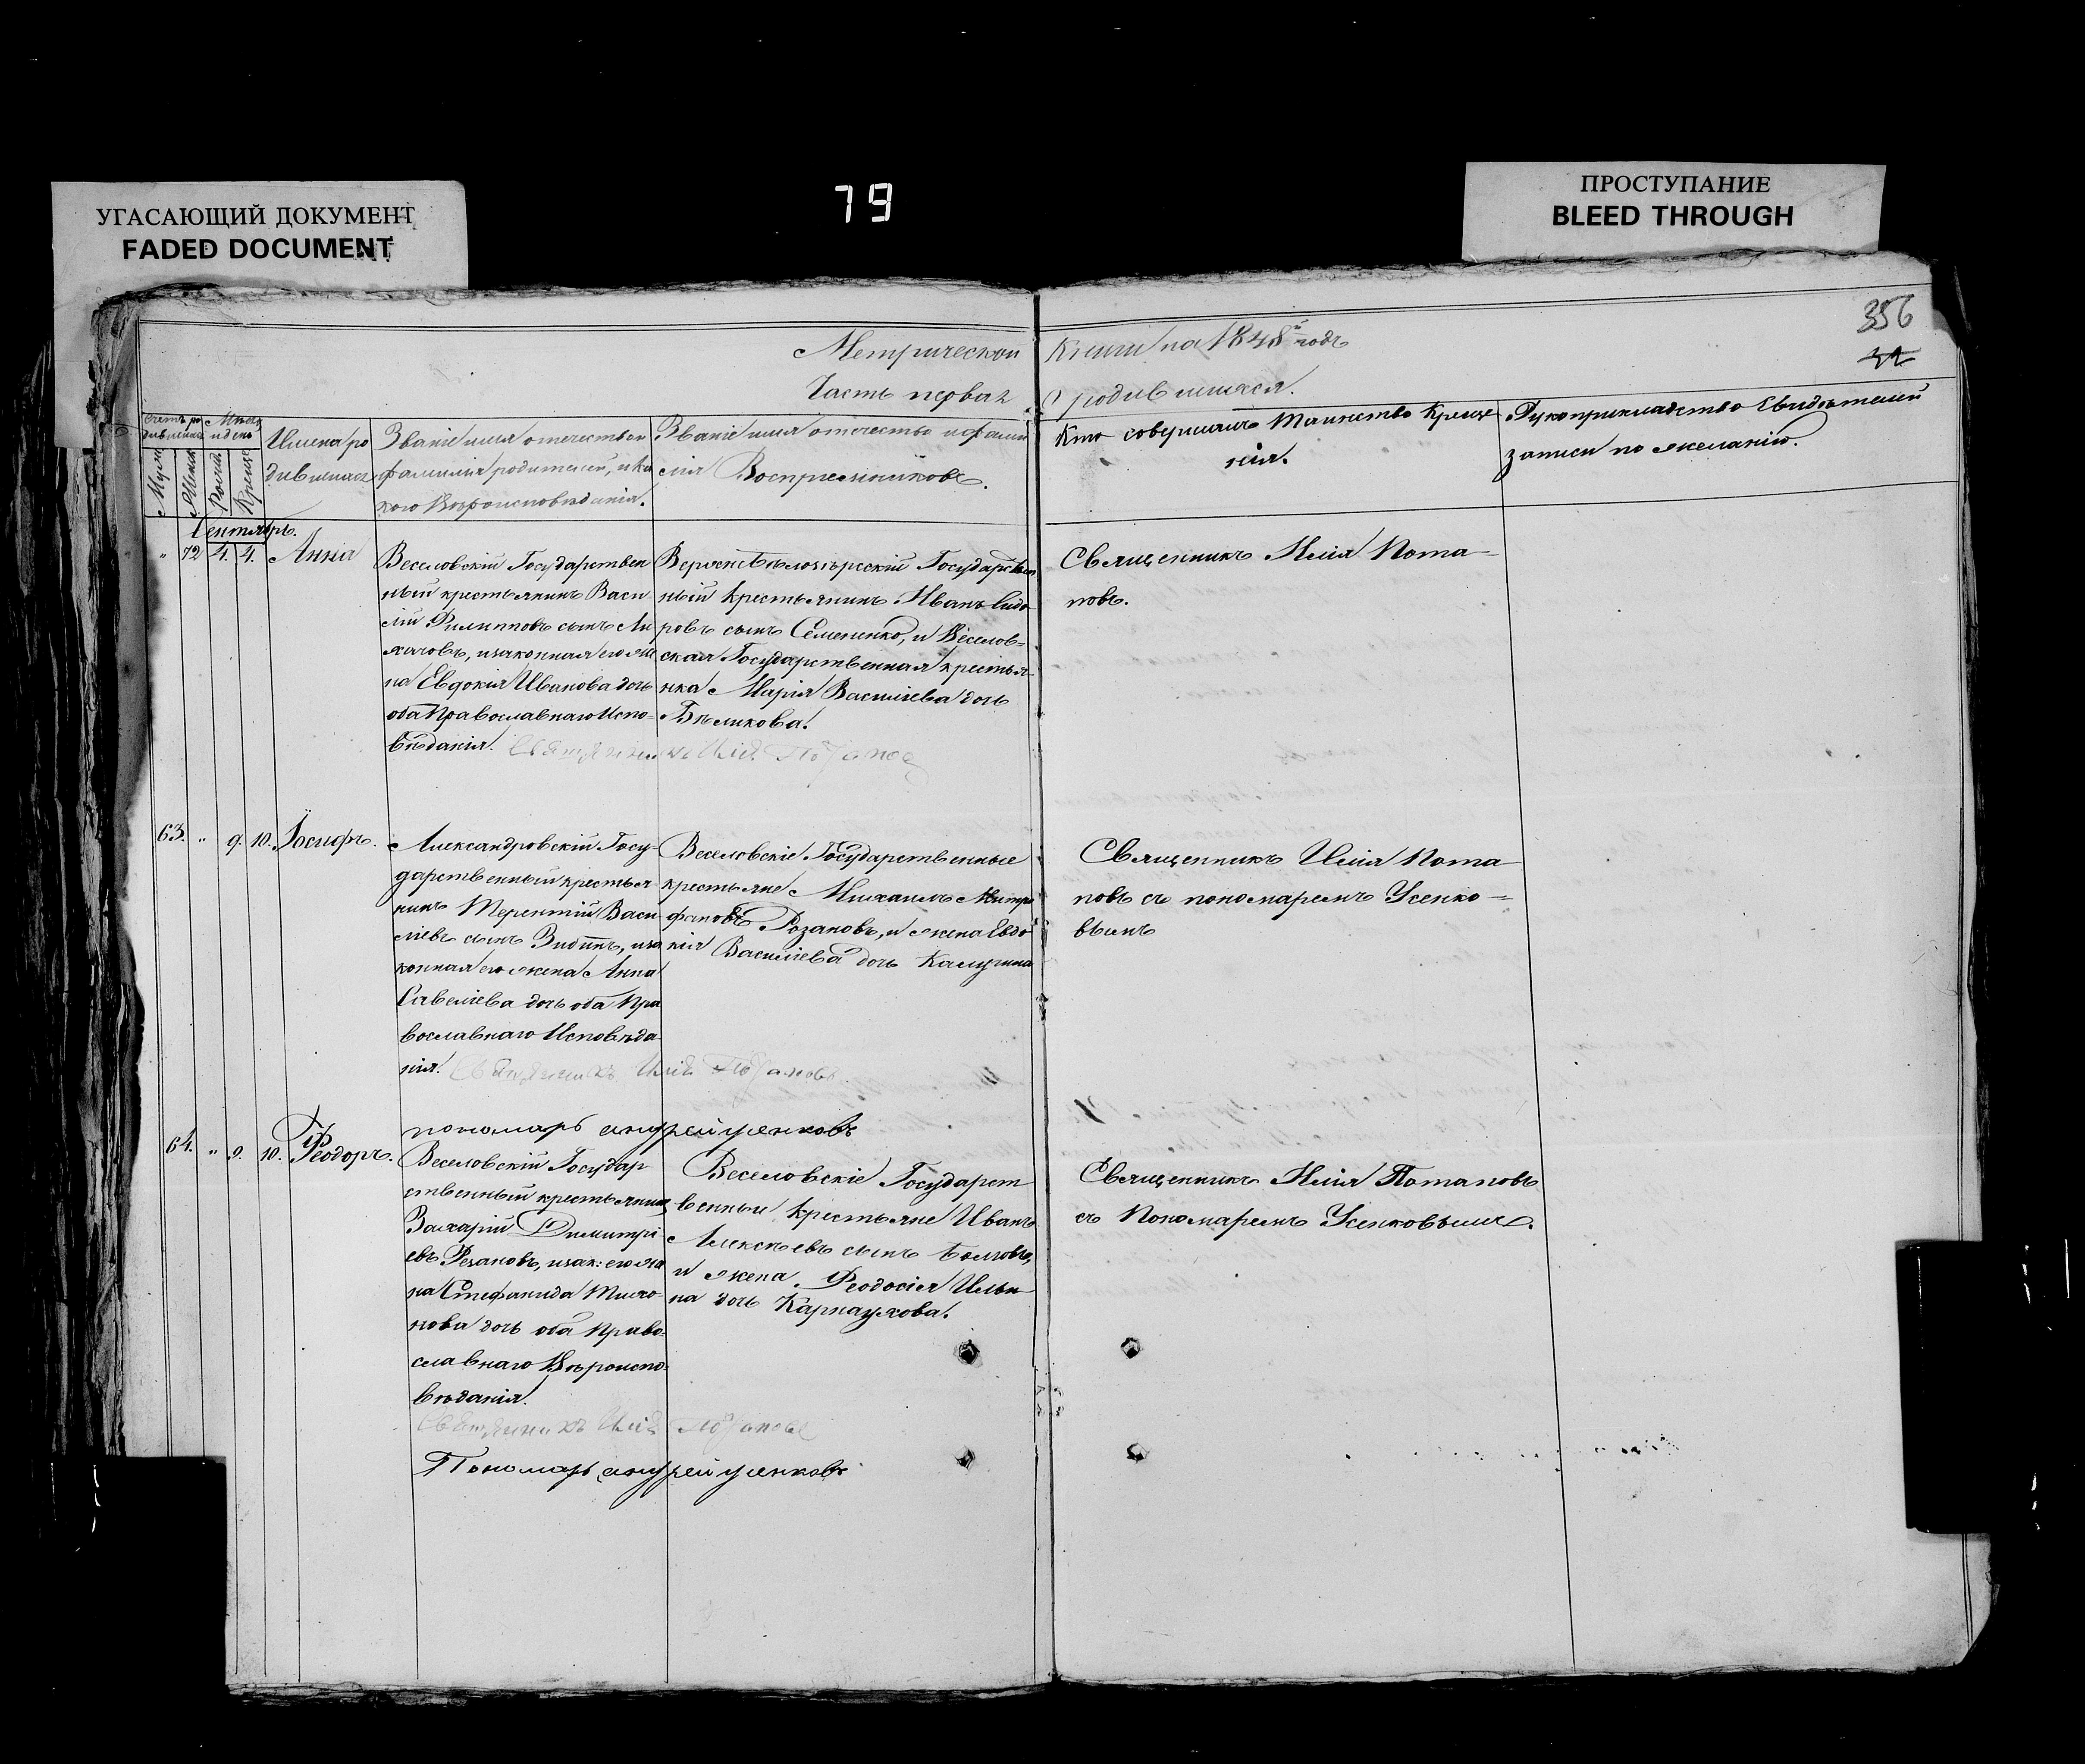 УГАСАЮЩИЙ ДОКУМЕНТ
FADED DOCUMENT
79
ПРОСТУПАНИЕ
BLEED THROUGH
356
Метрической Книги на 1848й годъ
Часть первая О родившихся.
Счетъ ро
дившихся
Мѣсяц
и день
Муж
Женск
Рожд
Крещ
Имена ро
дившихся
Званіе имя отечество и
фамилія родителей, и ка
кого Вѣроисповѣданія.
Званіе имя отечество и фами
лія Воспріемниковъ.
Кто совершалъ Таинство Креще
нія.
Рукоприкладство Свидѣтелей
записи по желанію.
Сентябрь.
" 72 4. 4. Анна
Веселовскій Государствен
ный крестьянинъ Васи-
лій Филипповъ сынъ
и законная его же
на Евдокія Иванова дочь
оба Православнаго Испо-
вѣданія. Священникъ Илія Потаповъ
Государствен
ный Крестьянинъ Иванъ Сидо-
ровъ сынъ Семененко, и Веселов-
ская Государственная крестья-
нка Марія Василіева дочь
Бѣликова.
Священникъ Илія Пота-
повъ.
63. " 9. 10. Іосифъ.
Александровскій Госу-
дарственный крестья
нинъ Терентій Васи
ліевъ сынъ и за
конная его жена Анна
Савеліева дочь оба Пра
вославнаго Исповѣда
нія. Священникъ Илія Потаповъ
пономарь андрей усенковъ
Веселовскіе Государственные
крестьяне Михаилъ Митро
фановъ Розановъ, и жена Евдо
кія Василіева дочь Калугина
Священникъ Илія Пота-
повъ съ пономаремъ Усенко-
вымъ
64. " 9. 10. Ѳеодоръ.
Веселовскій Государ
ственный крестьянинъ
Захарій Димитрі-
евъ Розановъ, и зак: его же
на Стефанида Тихо-
нова дочь оба Право-
славнаго Вѣроиспо-
вѣданія.
Священникъ Илія Потаповъ
Пономарь андрей усенковъ
Веселовскіе Государст
венныи Крестьяне Иванъ
Алексѣевъ сынъ
и жена Ѳеодосія Ильи
на дочь Карнаухова.
Священникъ Илія Потаповъ
съ Пономаремъ Усенковымъ.